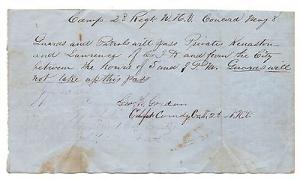 Camp 2d Regt N.H.V. Concord May 8
Guards and Patrols will pass Privates Kenaston
and Lawrence to and from the City
between the hours of 7 and 9 P.M. Guards will
not take up this pass
Geo. W. Gordon
Capt Comdg Co. 2d N.H.